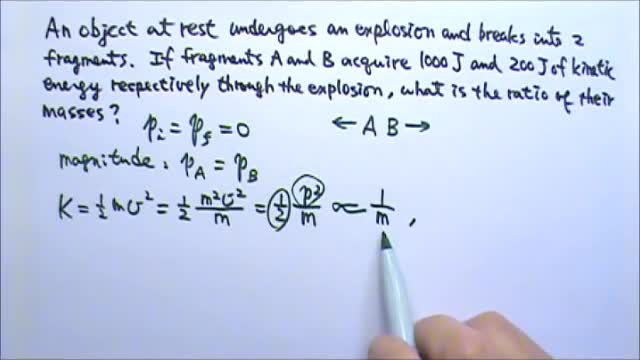 An object at rest undergoes an explosion and breaks into 2
fragments. If fragments A and B acquire 1000 J and 200 J of kinetic
energy respectively through the explosion, what is the ratio of their
masses?
p_i = p_f = 0 ← A B →
magnitude: p_A = p_B
K = ½ m v² = ½ m²v²/m = ½ p²/m ∝ 1/m ,